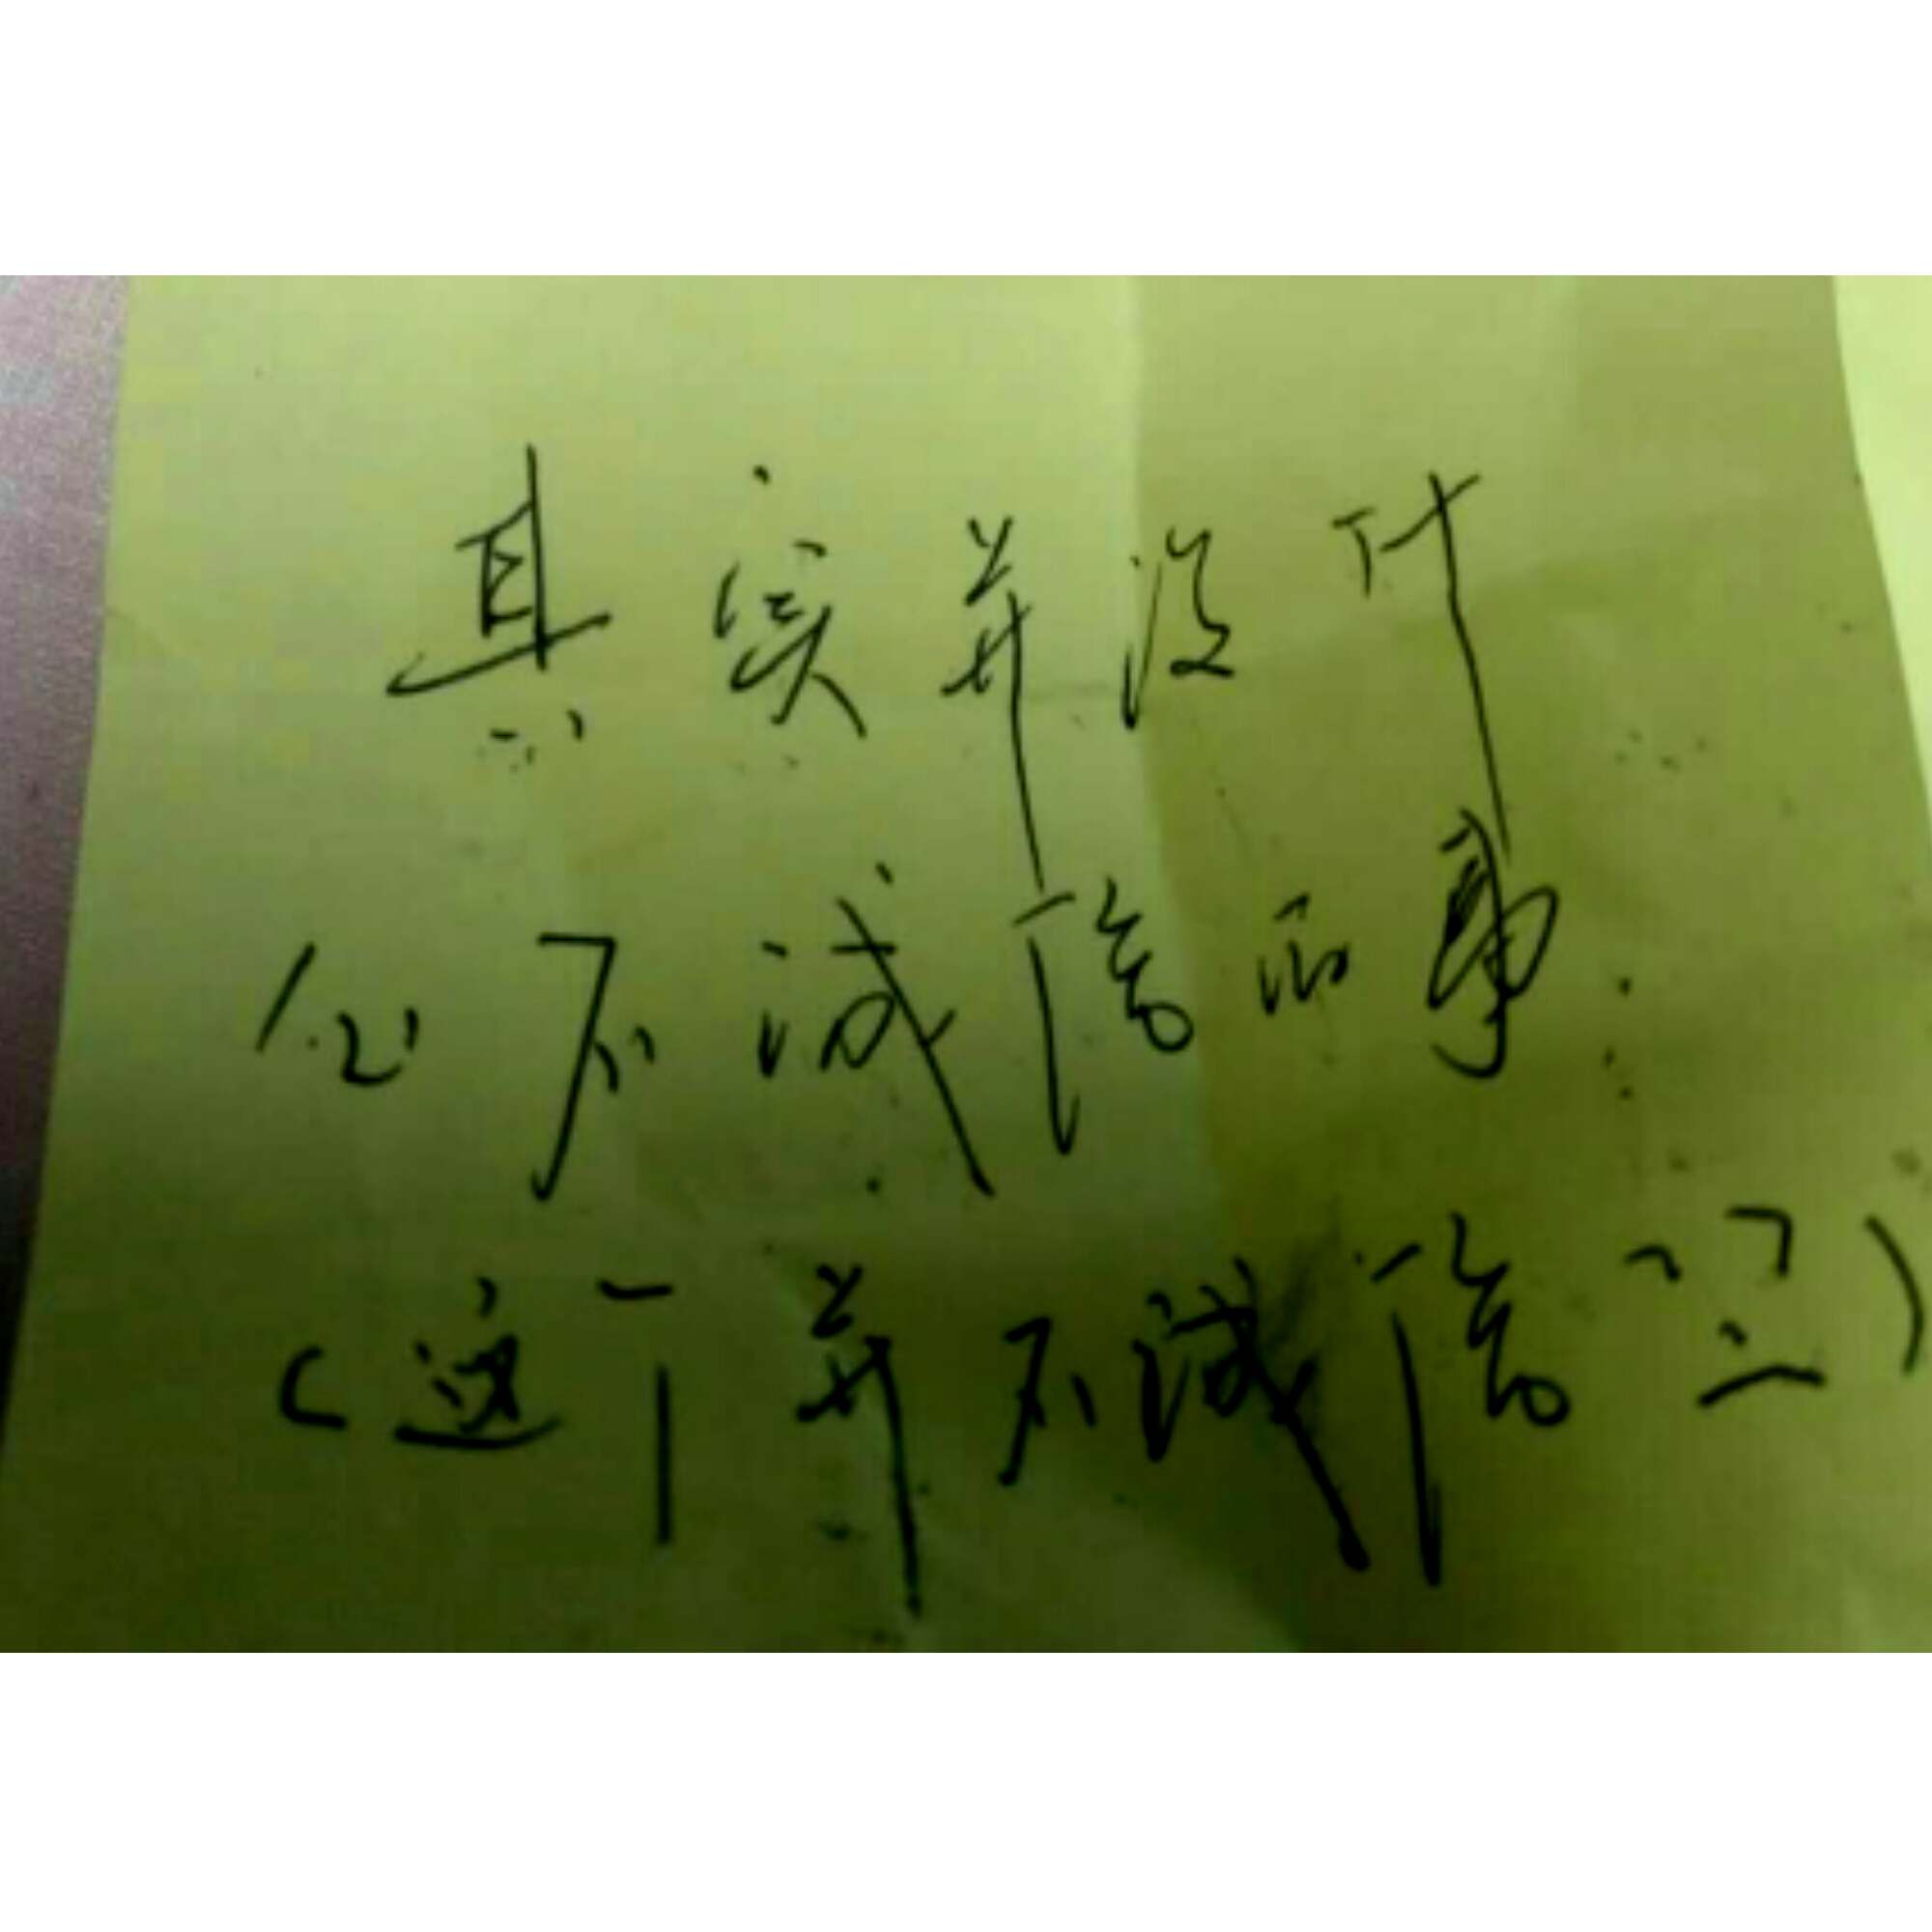 其实并没什
么不诚信的事.
(这个并不诚信